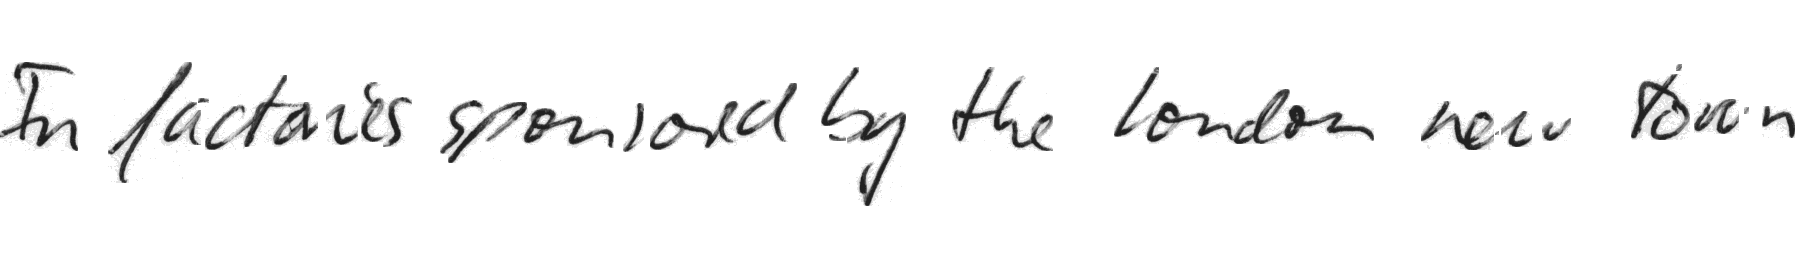 In factories sponsored by the London new town